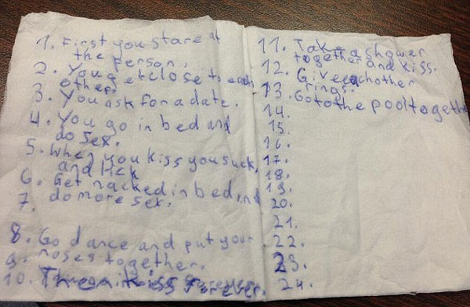 1. First you stare at
the person.
2. You get close to each
others
3. You ask for a date.
4. You go in bed and
do sex.
5. When you kiss you suck,
and lick
6. Get nacked in bed, and
7. do more sex.
8. Go dance and put your
9. noses together.
10. kiss forever.
11. Take a shower
together and kiss.
12. Give eachother
13. rings.
Go to the pool together
14.
15.
16.
17.
18.
19.
20.
21.
22.
23.
24.